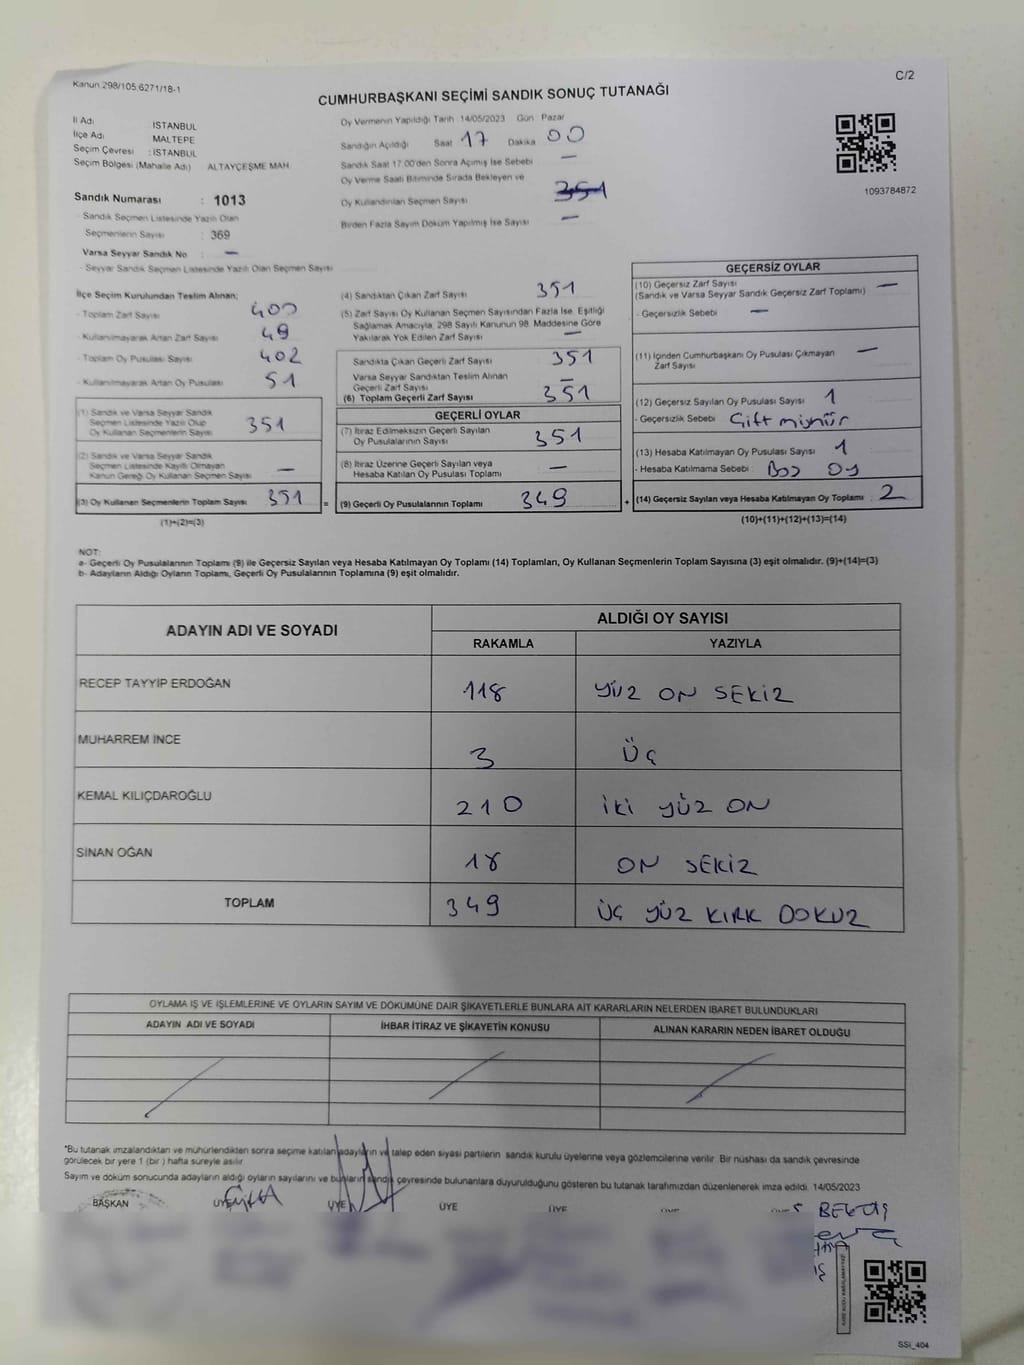 Kanun 298/105,6271/18-1
C/2
CUMHURBAŞKANI SEÇİMİ SANDIK SONUÇ TUTANAĞI
İl Adı İSTANBUL
İlçe Adı MALTEPE
Seçim Çevresi : İSTANBUL
Seçim Bölgesi (Mahalle Adı) ALTAYÇEŞME MAH.
Oy Vermenin Yapıldığı Tarih :14/05/2023 Gün Pazar
Sandığın Açıldığı Saat 17 Dakika 00
Sandık Saat 17.00'den Sonra Açımış İse Sebebi —
Oy Verme Saati Bitiminde Sırada Bekleyen ve
Oy Kullandırılan Seçmen Sayısı 351
Birden Fazla Sayım Döküm Yapılmış İse Sayısı —
1093784872
Sandık Numarası : 1013
- Sandık Seçmen Listesinde Yazılı Olan
Seçmenlerin Sayısı : 369
Varsa Seyyar Sandık No : —
- Seyyar Sandık Seçmen Listesinde Yazılı Olan Seçmen Sayısı
İlçe Seçim Kurulundan Teslim Alınan;
- Toplam Zarf Sayısı 400
- Kullanılmayarak Artan Zarf Sayısı 49
- Toplam Oy Pusulası Sayısı 402
- Kullanılmayarak Artan Oy Pusulası 51
(1) Sandık ve Varsa Seyyar Sandık
Seçmen Listesinde Yazılı Olup
Oy Kullanan Seçmenlerin Sayısı 351
(2) Sandık ve Varsa Seyyar Sandık
Seçmen Listesinde Kayıtlı Olmayan
Kanun Gereği Oy Kullanan Seçmen Sayısı —
(3) Oy Kullanan Seçmenlerin Toplam Sayısı 351
(1)+(2)=(3)
(4) Sandıktan Çıkan Zarf Sayısı 351
(5) Zarf Sayısı Oy Kullanan Seçmen Sayısından Fazla İse, Eşitliği
Sağlamak Amacıyla, 298 Sayılı Kanunun 98. Maddesine Göre
Yakılarak Yok Edilen Zarf Sayısı —
Sandıkta Çıkan Geçerli Zarf Sayısı 351
Varsa Seyyar Sandıktan Teslim Alınan
Geçerli Zarf Sayısı —
(6) Toplam Geçerli Zarf Sayısı 351
GEÇERLİ OYLAR
(7) İtiraz Edilmeksizin Geçerli Sayılan
Oy Pusulalarının Sayısı 351
(8) İtiraz Üzerine Geçerli Sayılan veya
Hesaba Katılan Oy Pusulası Toplamı —
= (9) Geçerli Oy Pusulalarının Toplamı 349 +
GEÇERSİZ OYLAR
(10) Geçersiz Zarf Sayısı —
(Sandık ve Varsa Seyyar Sandık Geçersiz Zarf Toplamı)
- Geçersizlik Sebebi —
(11) İçinden Cumhurbaşkanı Oy Pusulası Çıkmayan
Zarf Sayısı —
(12) Geçersiz Sayılan Oy Pusulası Sayısı 1
- Geçersizlik Sebebi Çift mühür
(13) Hesaba Katılmayan Oy Pusulası Sayısı 1
- Hesaba Katılmama Sebebi : Boş oy
(14) Geçersiz Sayılan veya Hesaba Katılmayan Oy Toplamı : 2
(10)+(11)+(12)+(13)=(14)
NOT:
a- Geçerli Oy Pusulalarının Toplamı (9) ile Geçersiz Sayılan veya Hesaba Katılmayan Oy Toplamı (14) Toplamları, Oy Kullanan Seçmenlerin Toplam Sayısına (3) eşit olmalıdır. (9)+(14)=(3)
b- Adayların Aldığı Oyların Toplamı, Geçerli Oy Pusulalarının Toplamına (9) eşit olmalıdır.
ADAYIN ADI VE SOYADI ALDIĞI OY SAYISI
RAKAMLA YAZIYLA
RECEP TAYYİP ERDOĞAN 118 YÜZ ON SEKİZ
MUHARREM İNCE 3 ÜÇ
KEMAL KILIÇDAROĞLU 210 İKİ YÜZ ON
SİNAN OĞAN 18 ON SEKİZ
TOPLAM 349 ÜÇ YÜZ KIRK DOKUZ
OYLAMA İŞ VE İŞLEMLERİNE VE OYLARIN SAYIM VE DÖKÜMÜNE DAİR ŞİKAYETLERLE BUNLARA AİT KARARLARIN NELERDEN İBARET BULUNDUKLARI
ADAYIN ADI VE SOYADI İHBAR İTİRAZ VE ŞİKAYETİN KONUSU ALINAN KARARIN NEDEN İBARET OLDUĞU
*Bu tutanak imzalandıktan ve mühürlendikten sonra seçime katılan adayların ve talep eden siyasi partilerin sandık kurulu üyelerine veya gözlemcilerine verilir. Bir nüshası da sandık çevresinde
görülecek bir yere 1 (bir) hafta süreyle asılır.
Sayım ve döküm sonucunda adayların aldığı oyların sayılarını ve bunların sandık çevresinde bulunanlara duyurulduğunu gösteren bu tutanak tarafımızdan düzenlenerek imza edildi. 14/05/2023
BAŞKAN ÜYE ÜYE ÜYE ÜYE
BEKTAŞ
SSİ_404